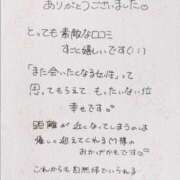 ありがとうございました
とっても素敵な口コミ
すごく嬉しいです(;;)
「また会いたくなる女性」って
思ってもらえて もったいない位
幸せです。
距離が近くなってしまうのは
優しく迎えてくれる
おかげかもです
これからも自然体でいられる